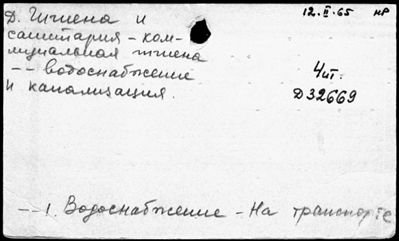 Д. Гигиена и
санитария - ком-
мунальная гигиена
-- водоснабжение
и канализация.
12.II.65 нр
4 шт.
Д32669
-- 1. Водоснабжение - На транспорте